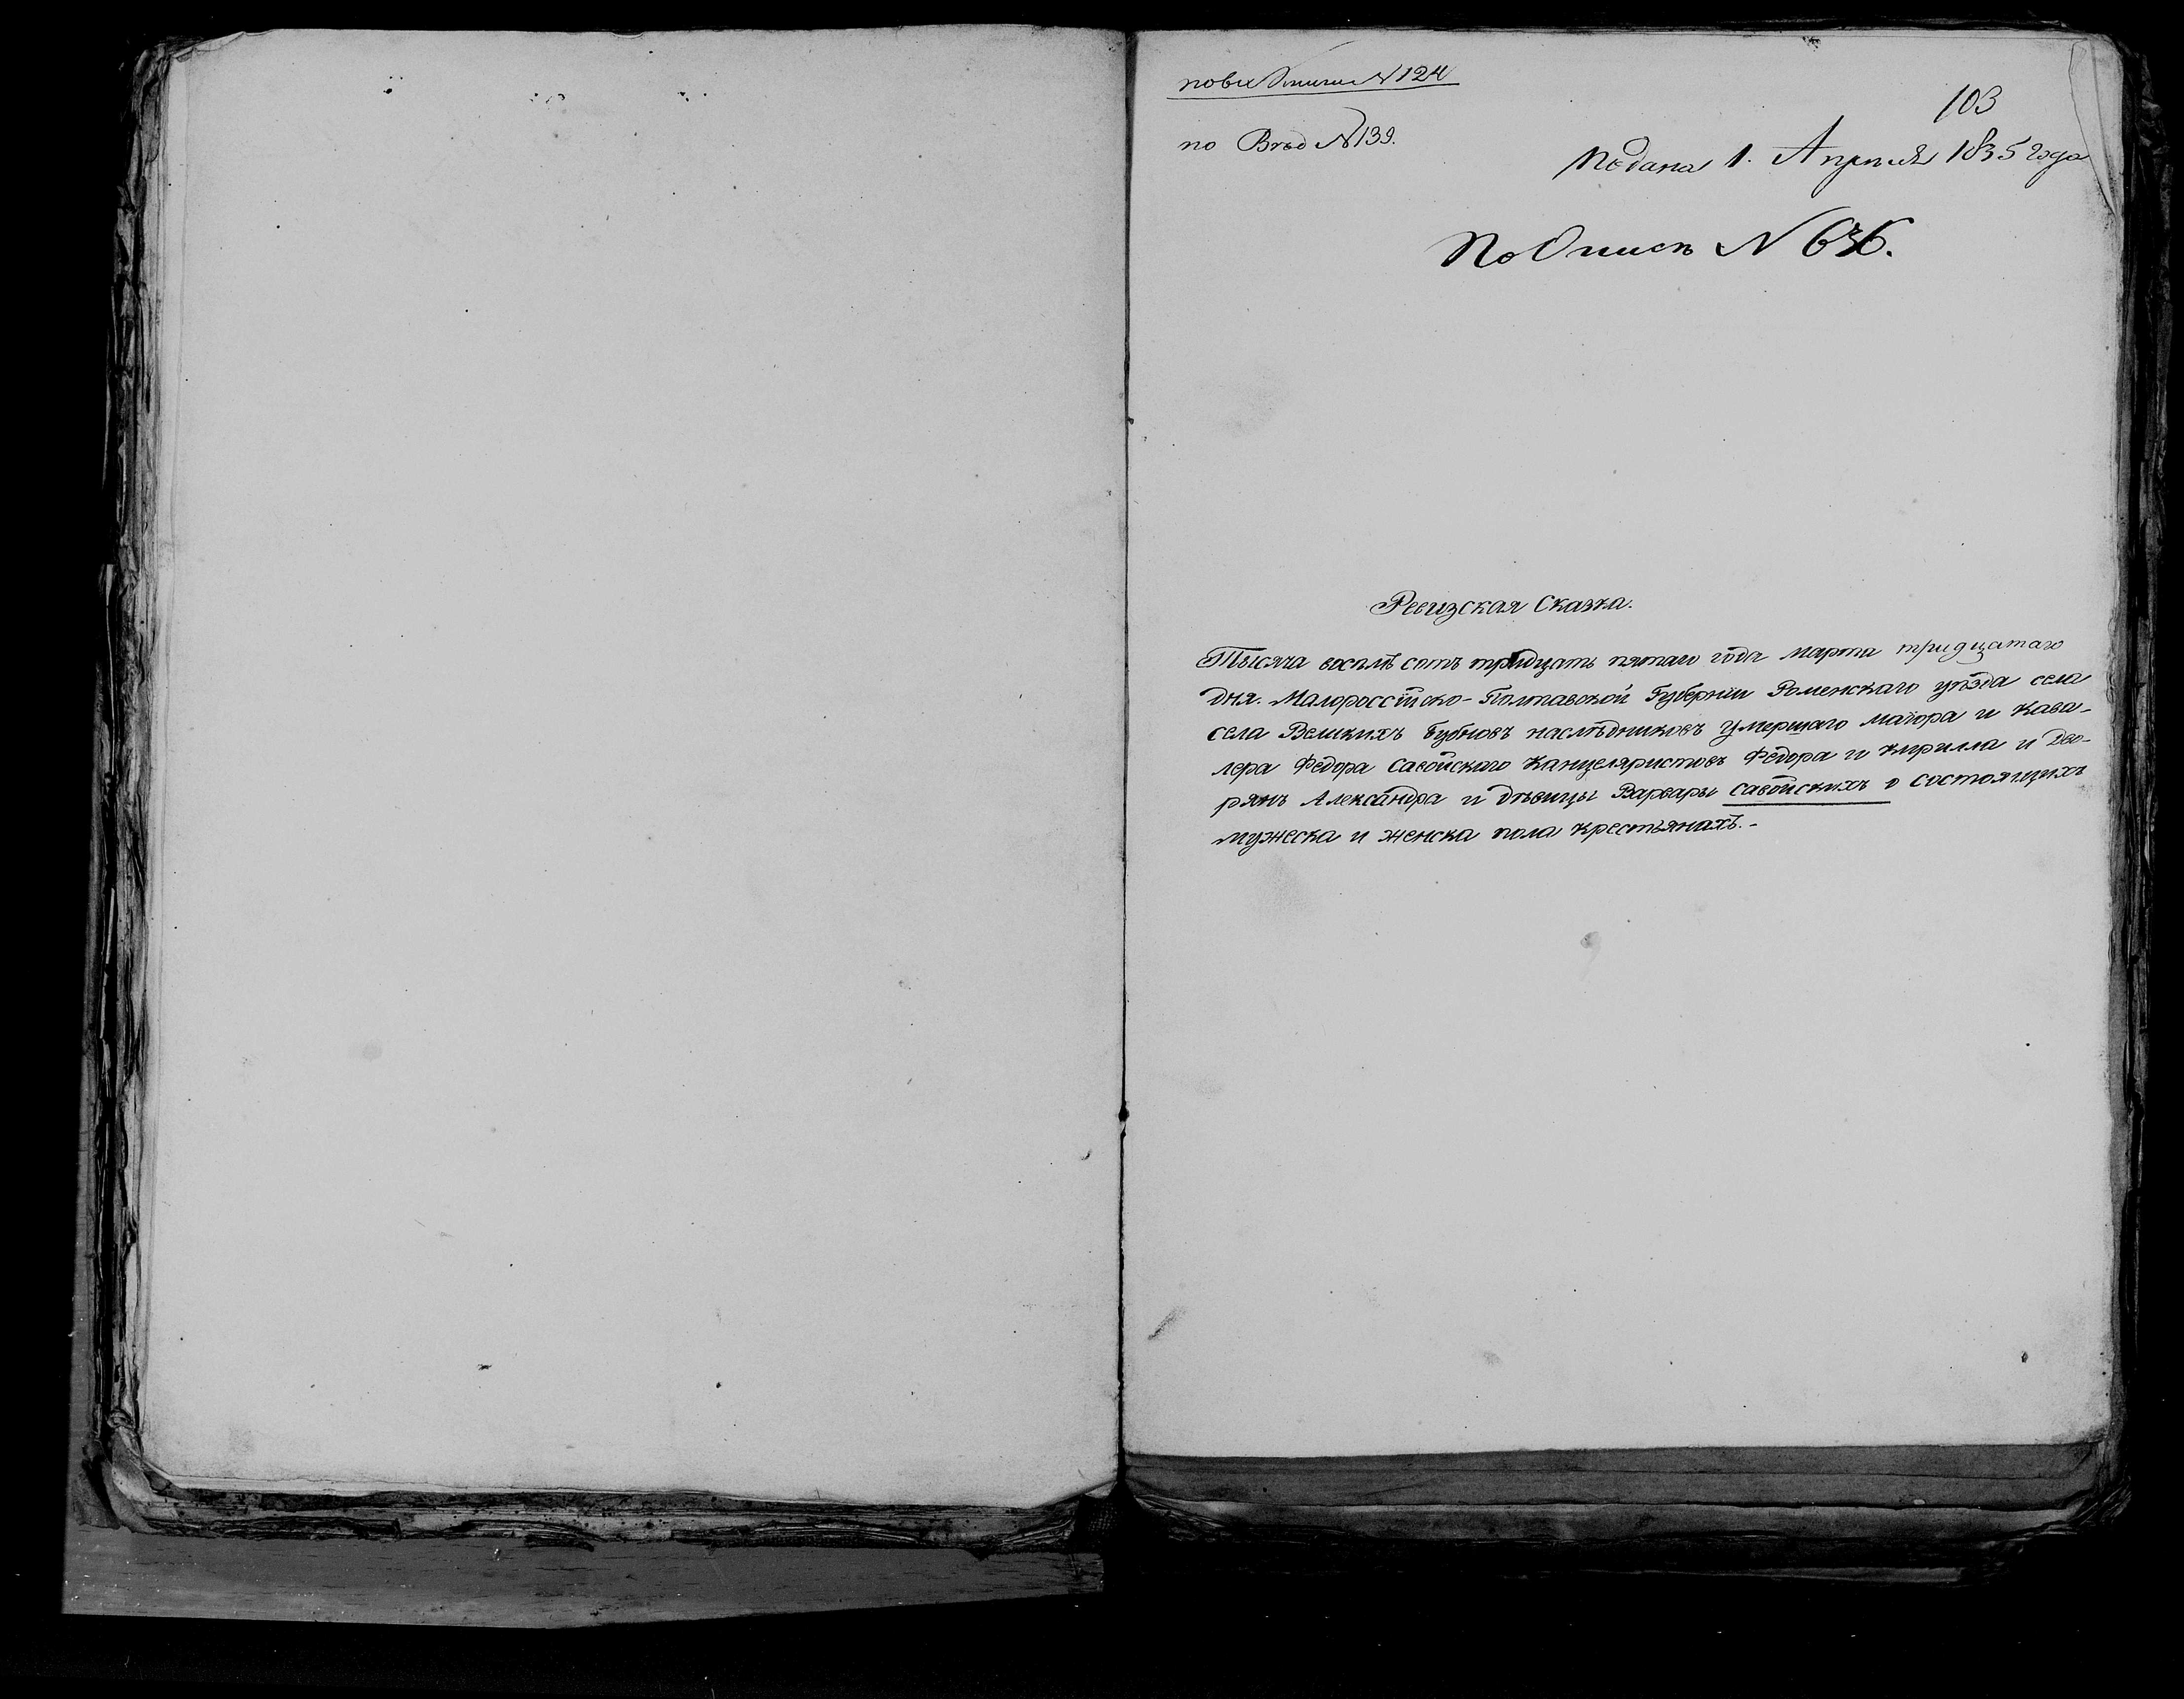 N 124
103
по N 139.
Подана 1. Апреля 1835 года
По Описи N
Ревизская Сказка.
Тысяча восемь сотъ тридцать пятаго года марта тридцатаго
дня. Малороссійско-Полтавской Губерніи Роменскаго уѣзда села
села Великихъ Бубновъ наслѣдниковъ умершаго маіора и Кава-
лера Федора Савойскаго Канцеляристовъ Федора и Кирилла и Дво-
рянъ Александра и дѣвицы Варвары Савойскихъ о состоящихъ
мужеска и женска пола крестьянахъ.-